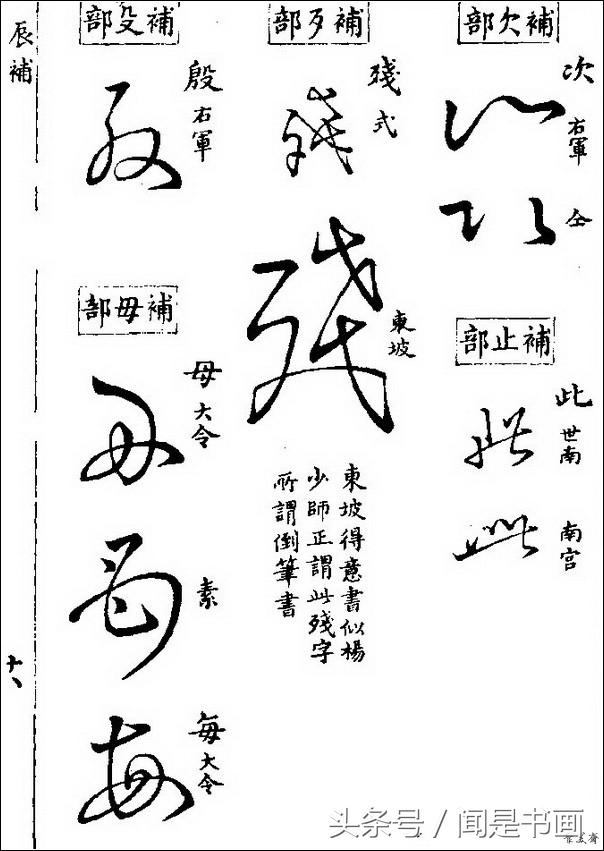 補欠部
次 右軍
次
仝
次
補止部
此 世南
此
南宫
此
補歹部
殘 式
殘
東坡
殘
東坡得意書似楊
少師正謂此殘字
所謂倒筆書
補殳部
殷 右軍
殷
補毋部
母 大令
母
素
每 大令
每
辰補
十八
头条号 / 闻是书画